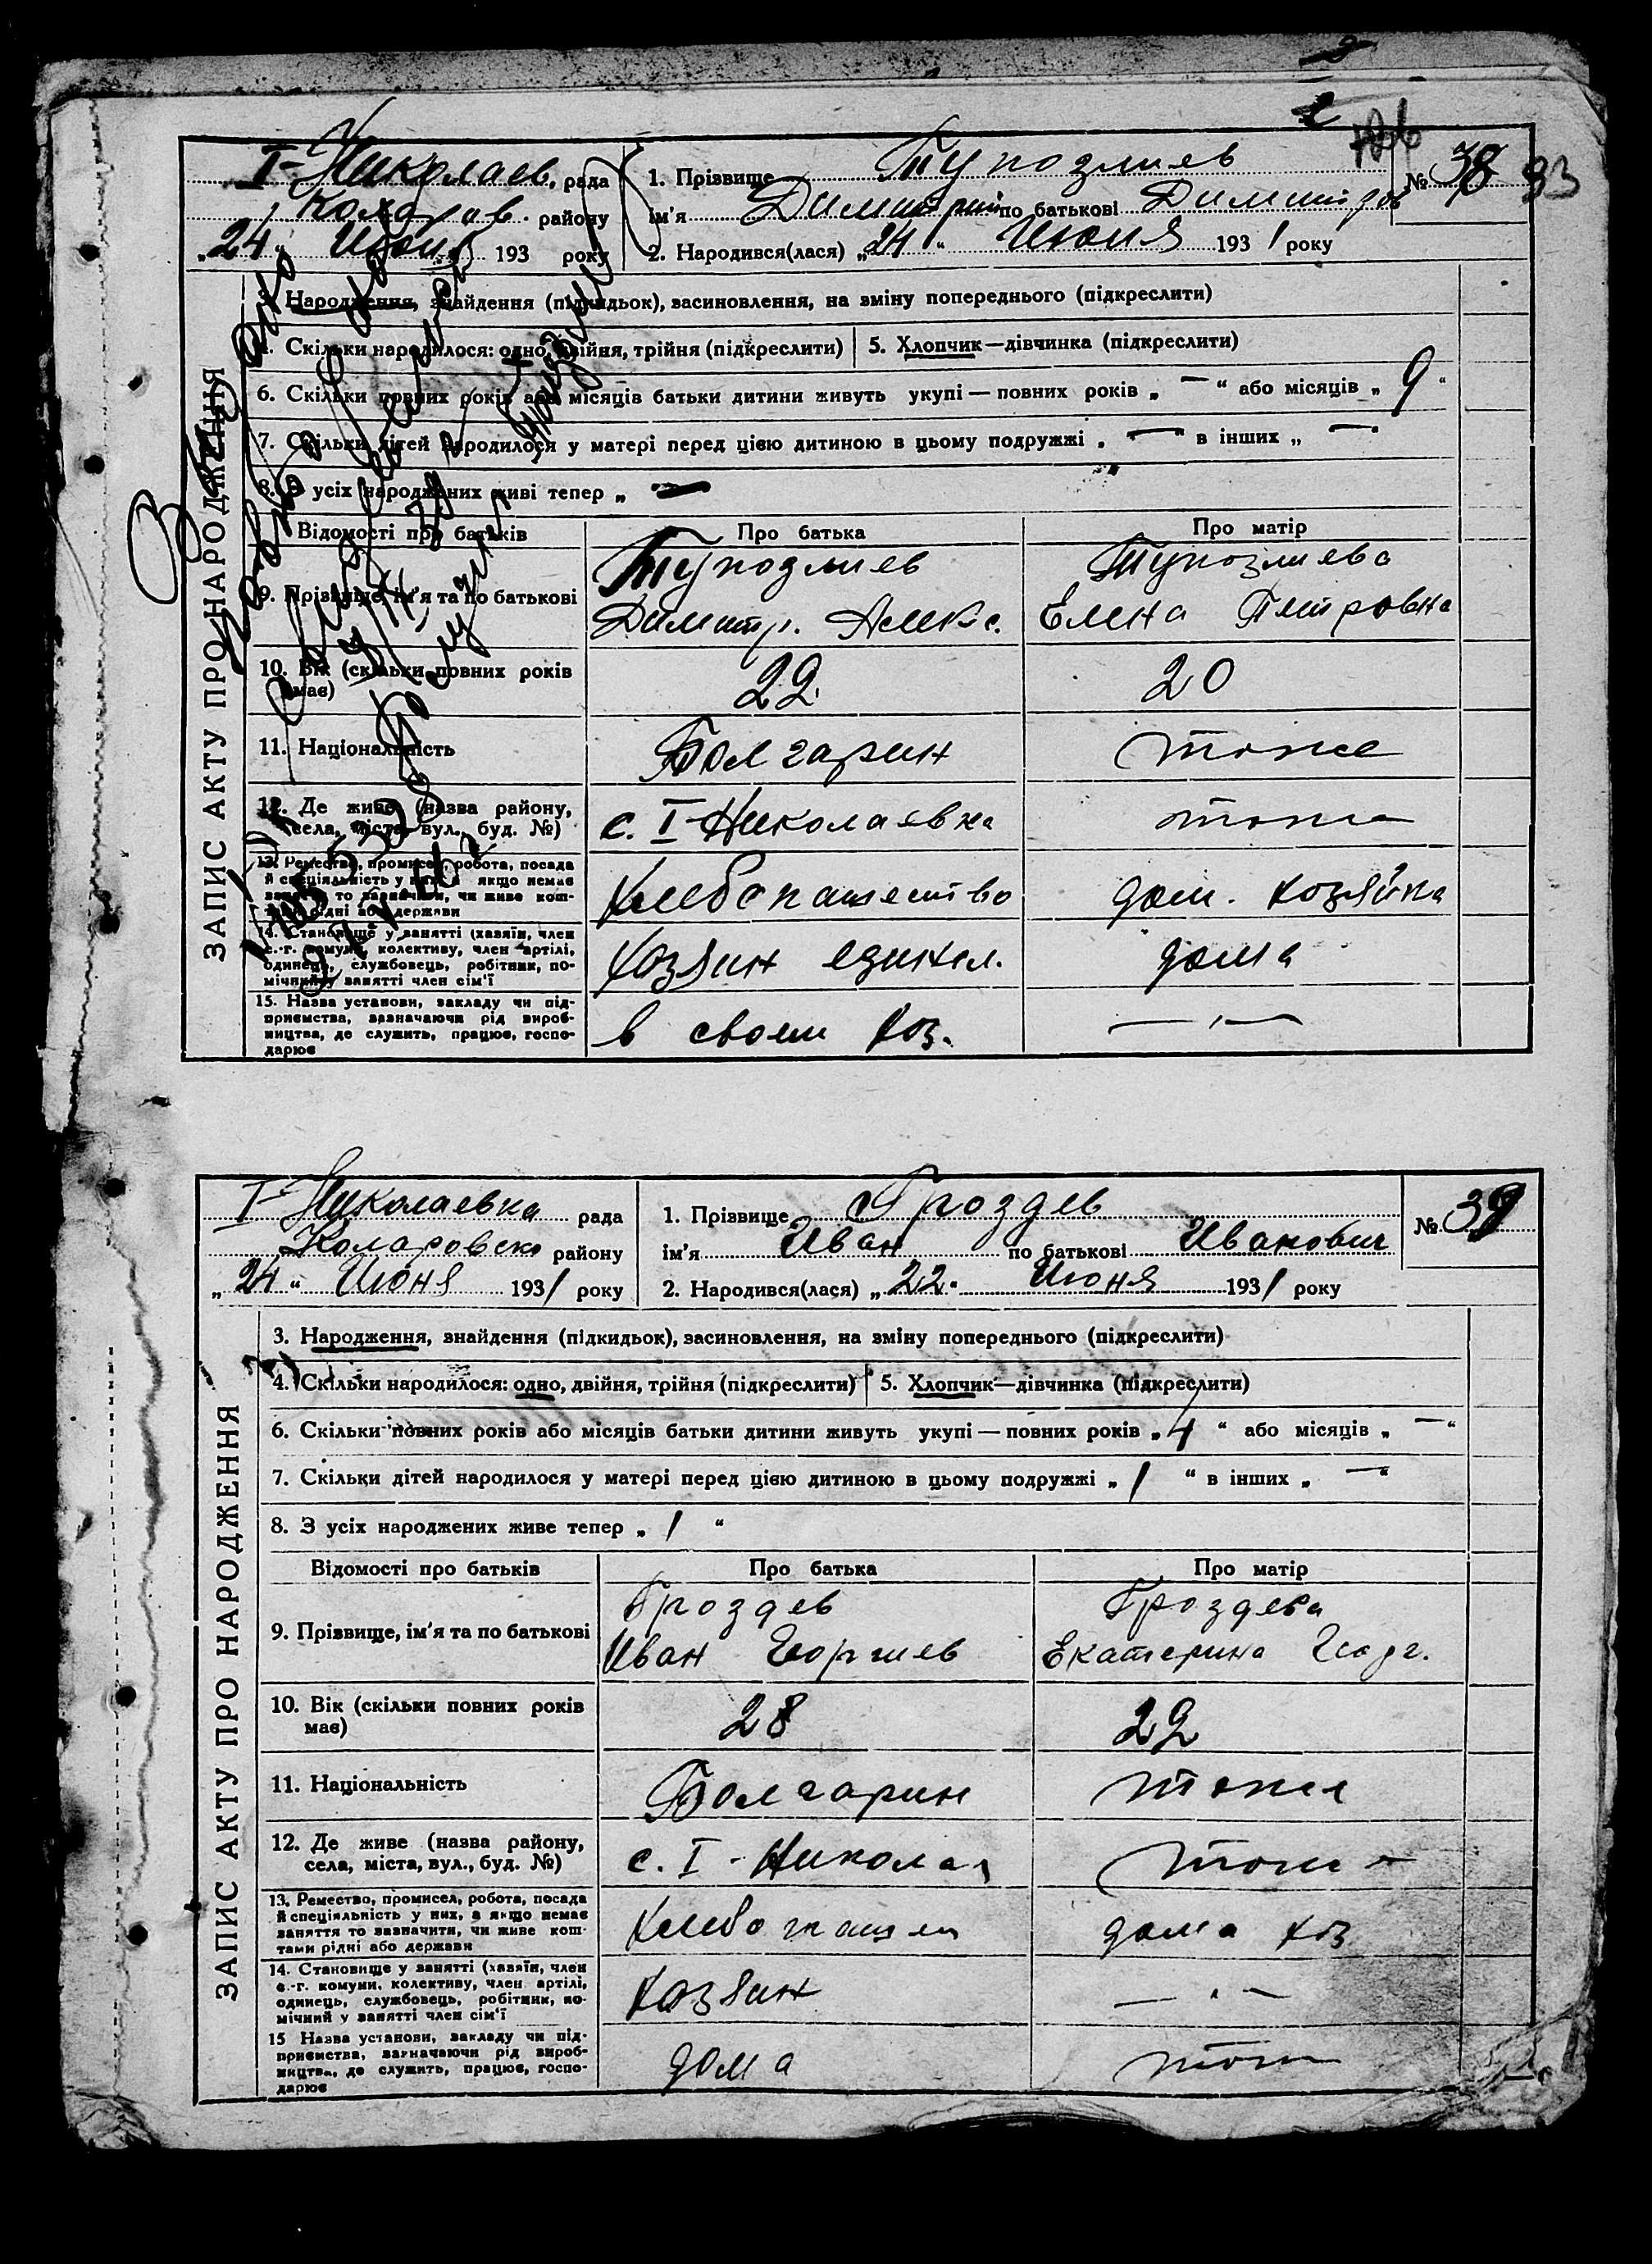 I-Николаев. рада
Коларов. району
„24“ Июня 193 року
1. Прізвище Тупозлиев
ім'я Димитрий по батькові Димитров
2. Народився(лася) „24“ Июня 1931 року
№ 38
93
ЗАПИС АКТУ ПРО НАРОДЖЕННЯ
3. Народження, знайдення (підкидьок), засиновлення, на зміну попереднього (підкреслити)
4. Скільки народилося: одно, двійня, трійня (підкреслити) 5. Хлопчик—дівчинка (підкреслити)
6. Скільки повних років або місяців батьки дитини живуть укупі — повних років „—“ або місяців „9“
7. Скільки дітей народилося у матері перед цією дитиною в цьому подружжі „—“ в інших „—“
8. З усіх народжених живі тепер „—
Відомості про батьків Про батька Про матір
9. Прізвище, ім'я та по батькові
Тупозлиев Тупозлиева
Димитр. Алекс. Елена Петровна
10. Вік (скільки повних років має) 22 20
11. Національність Болгарин тоже
12. Де живе (назва району, села, міста, вул., буд. №) с. I-Николаевка тоже
13. Ремество, промисел, робота, посада й спеціяльність у них, а якщо немає заняття то зазначити, чи живе коштами рідні або держави Хлебопашество дом. хозяйка
14. Становище у занятті (хазяїн, член с.-г. комуни, колективу, член артілі, одинець, службовець, робітник, помічний у занятті член сім'ї Хозяин единол. дома
15. Назва установи, закладу чи підприємства, зазначаючи рід виробництва, де служить, працює, господарює в своем хоз. — " —
I-Николаевка рада
Коларовско району
„24“ Июня 1931 року
1. Прізвище Гроздев
ім'я Иван по батькові Иванович
2. Народився(лася) „22“ Июня 1931 року
№ 39
ЗАПИС АКТУ ПРО НАРОДЖЕННЯ
3. Народження, знайдення (підкидьок), засиновлення, на зміну попереднього (підкреслити)
4. Скільки народилося: одно, двійня, трійня (підкреслити) 5. Хлопчик—дівчинка (підкреслити)
6. Скільки повних років або місяців батьки дитини живуть укупі — повних років „4“ або місяців „—“
7. Скільки дітей народилося у матері перед цією дитиною в цьому подружжі „1“ в інших „—“
8. З усіх народжених живе тепер „1“
Відомості про батьків Про батька Про матір
9. Прізвище, ім'я та по батькові
Гроздев Гроздева
Иван Георгиев Екатерина Георг.
10. Вік (скільки повних років має) 28 29
11. Національність Болгарин тоже
12. Де живе (назва району, села, міста, вул., буд. №) с. I-Никола тоже
13. Ремество, промисел, робота, посада й спеціяльність у них, а якщо немає заняття то зазначити, чи живе коштами рідні або держави Хлебопашец дома хоз
14. Становище у занятті (хазяїн, член с.-г. комуни, колективу, член артілі, одинець, службовець, робітник, помічний у занятті член сім'ї Хозяин — " —
15 Назва установи, закладу чи підприємства, зазначаючи рід виробництва, де служить, працює, господарює дома тоже